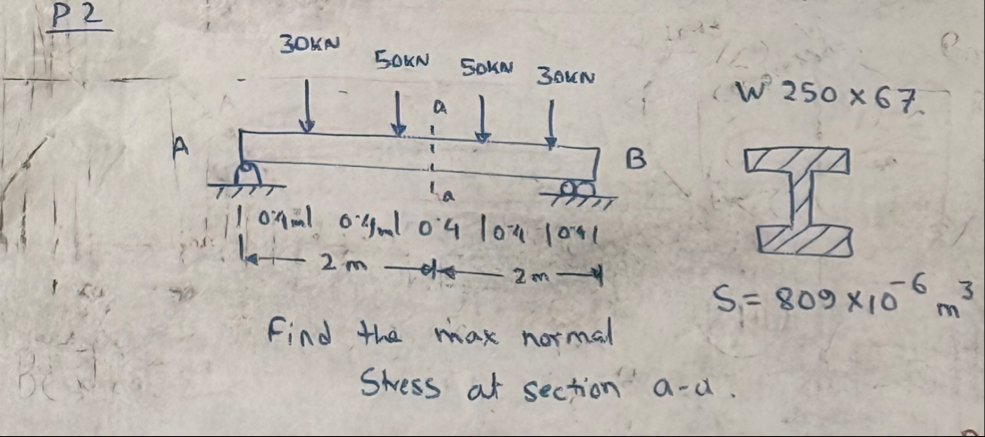 P2
30KN
50KN 50KN 30KN
W 250 x 67
a
A B
a
0.4m 0.4m 0.4 0.4 0.4
2m 2m
S = 809 x 10⁻⁶ m³
Find the max normal
Stress at section a-a.